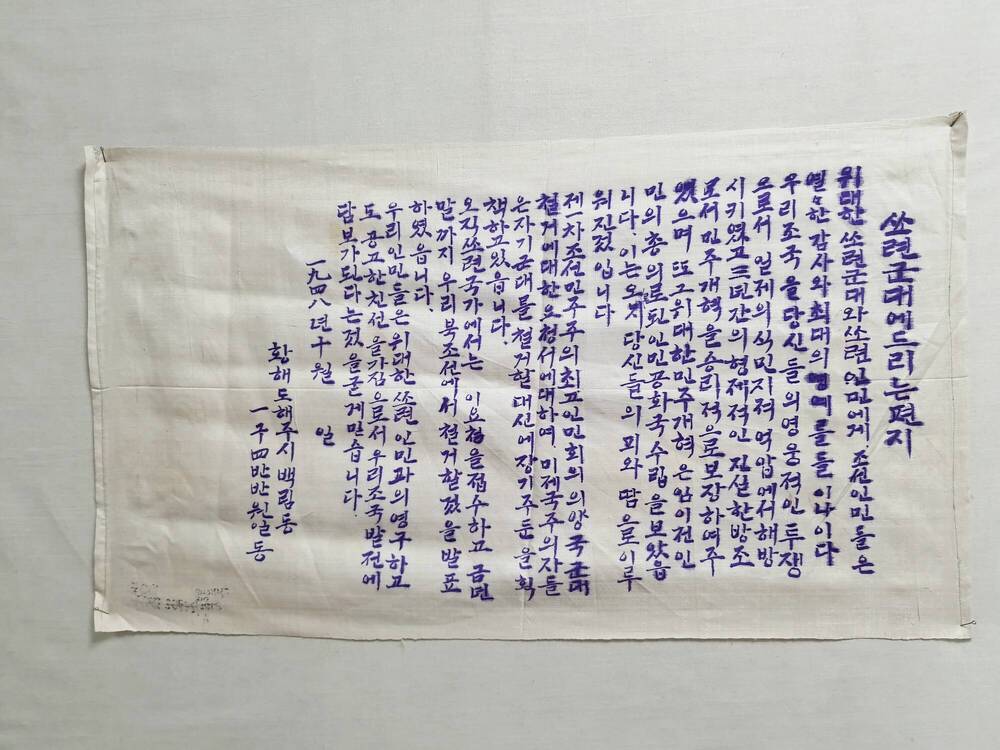 쏘련군대에드리는편지
위대한 쏘련군대와쏘련인민에게 조선인민들은
열々한 감사와최대의 영예를들 이나이다
우리조국을당신들의영웅적인 투쟁
으로서 일제의식민지적 억압에서해방
시키였고 三년간의형제적인 진실한방조
로서민주개혁을승리적으로보장하여주
었으며 또그위대한민주개혁은임이전인
민의 총의로된인민공화국수립을보았읍
니다. 이는오직당신들의 피와 땀으로이루
워진것입니다
제一차조선민주주의최고인민회의의양국군대
철거에대한요청서에대하여 미제국주의자들
은자기군대를철거할대신에장기주둔을획
책하고있읍니다.
오직쏘련국가에서는 이요청을접수하고 금년
말까지 우리북조선에서 철거할것을발표
하였읍니다.
우리인민들은위대한쏘련인민과의영구하고
도 공고한친선을가짐으로서우리조국발전에
담보가된다는것을굳게믿습니다.
一九四八년十월 일
황해도해주시백림동
一구四반반원일동